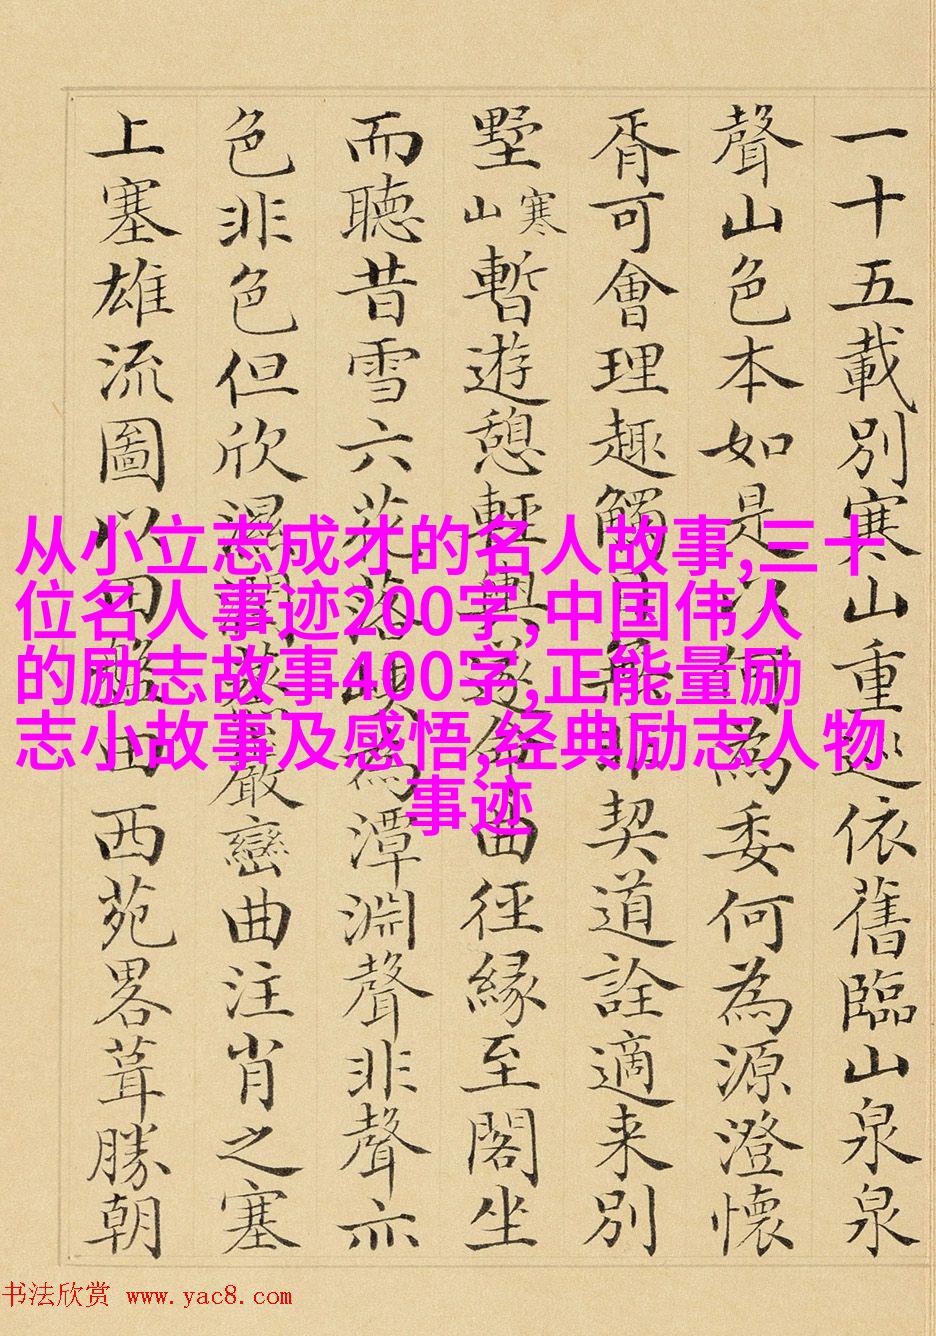 一十五載別寒山重巡依舊臨山泉泉
聲山色本如是何為委何為源澄懷
胥可會理趣觸目無非契道詮適来別
墅寒山暫遊憩輕輿曲徑緣至閣坐
而聽昔雪六花落為潭淵聲非聲亦
色非色但欣濕巖巒曲注肖之塞
上塞雄流圖以四田西苑畧葺勝朝
从小立志成才的名人故事,三十
位名人事迹200字,中国伟人
的励志故事400字,正能量励
志小故事及感悟,经典励志人物
事迹
书法欣赏 www.yac8.com